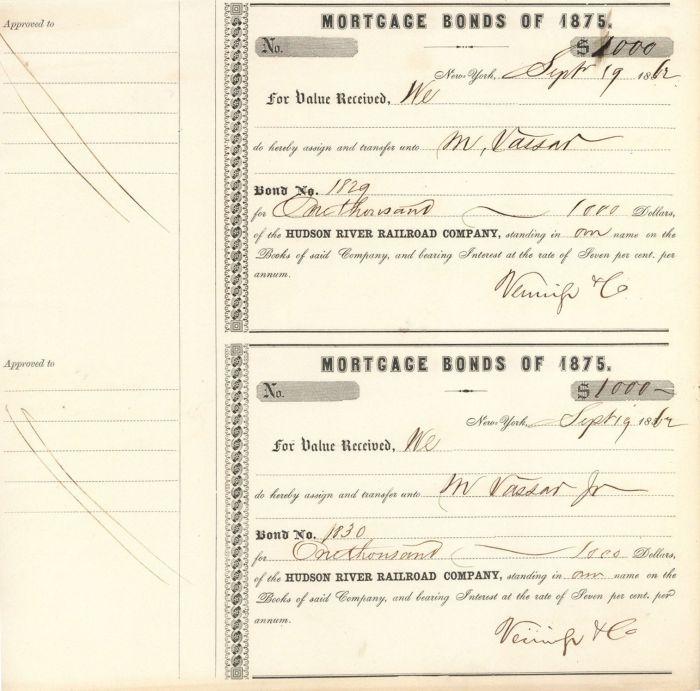 Approved to
MORTGAGE BONDS OF 1875.
No. $1000
New-York, Sept 19 1862
For Value Received, We
do hereby assign and transfer unto M, Vassar
Bond No. 1829
for One thousand 1000 Dollars,
of the HUDSON RIVER RAILROAD COMPANY, standing in our name on the
Books of said Company, and bearing Interest at the rate of Seven per cent. per
annum.
& Co
Approved to
MORTGAGE BONDS OF 1875.
No. $1000
New-York, Sept 19 1862
For Value Received, We
do hereby assign and transfer unto M Vassar Jr
Bond No. 1830
for One thousand 1000 Dollars,
of the HUDSON RIVER RAILROAD COMPANY, standing in our name on the
Books of said Company, and bearing Interest at the rate of Seven per cent. per
annum.
& Co